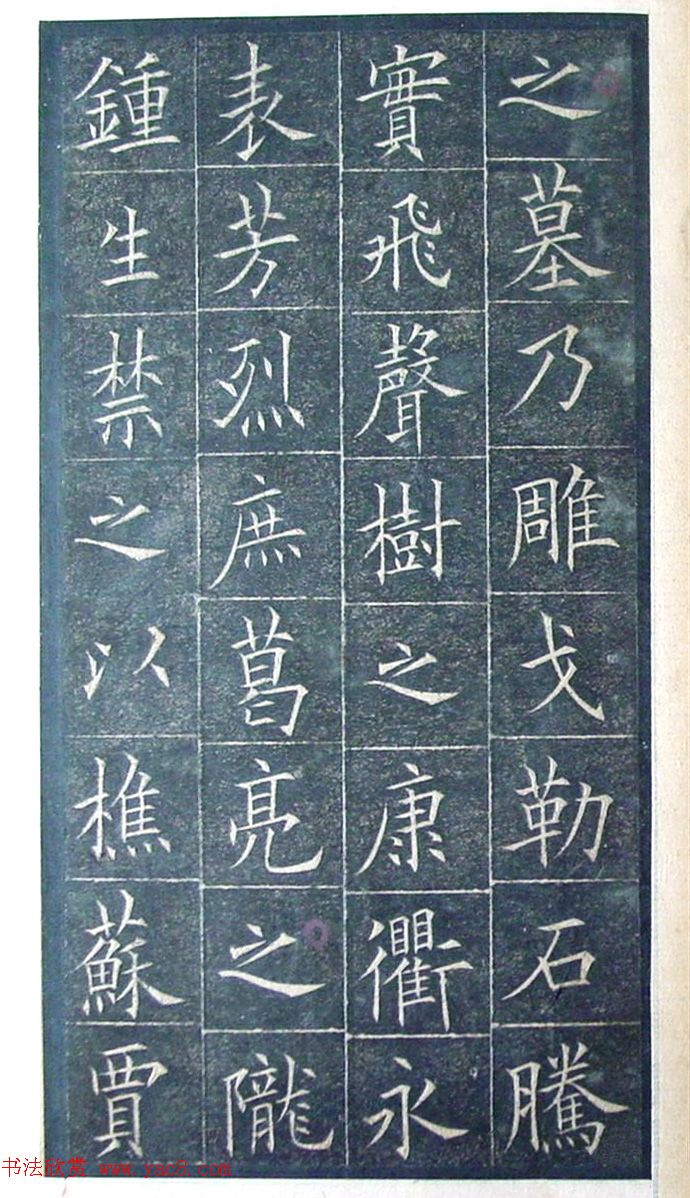 之墓乃雕戈勒石騰
實飛聲樹之康衢永
表芳烈庶葛亮之隴
鍾生禁之以樵蘇賈
书法欣赏 www.yac8.com